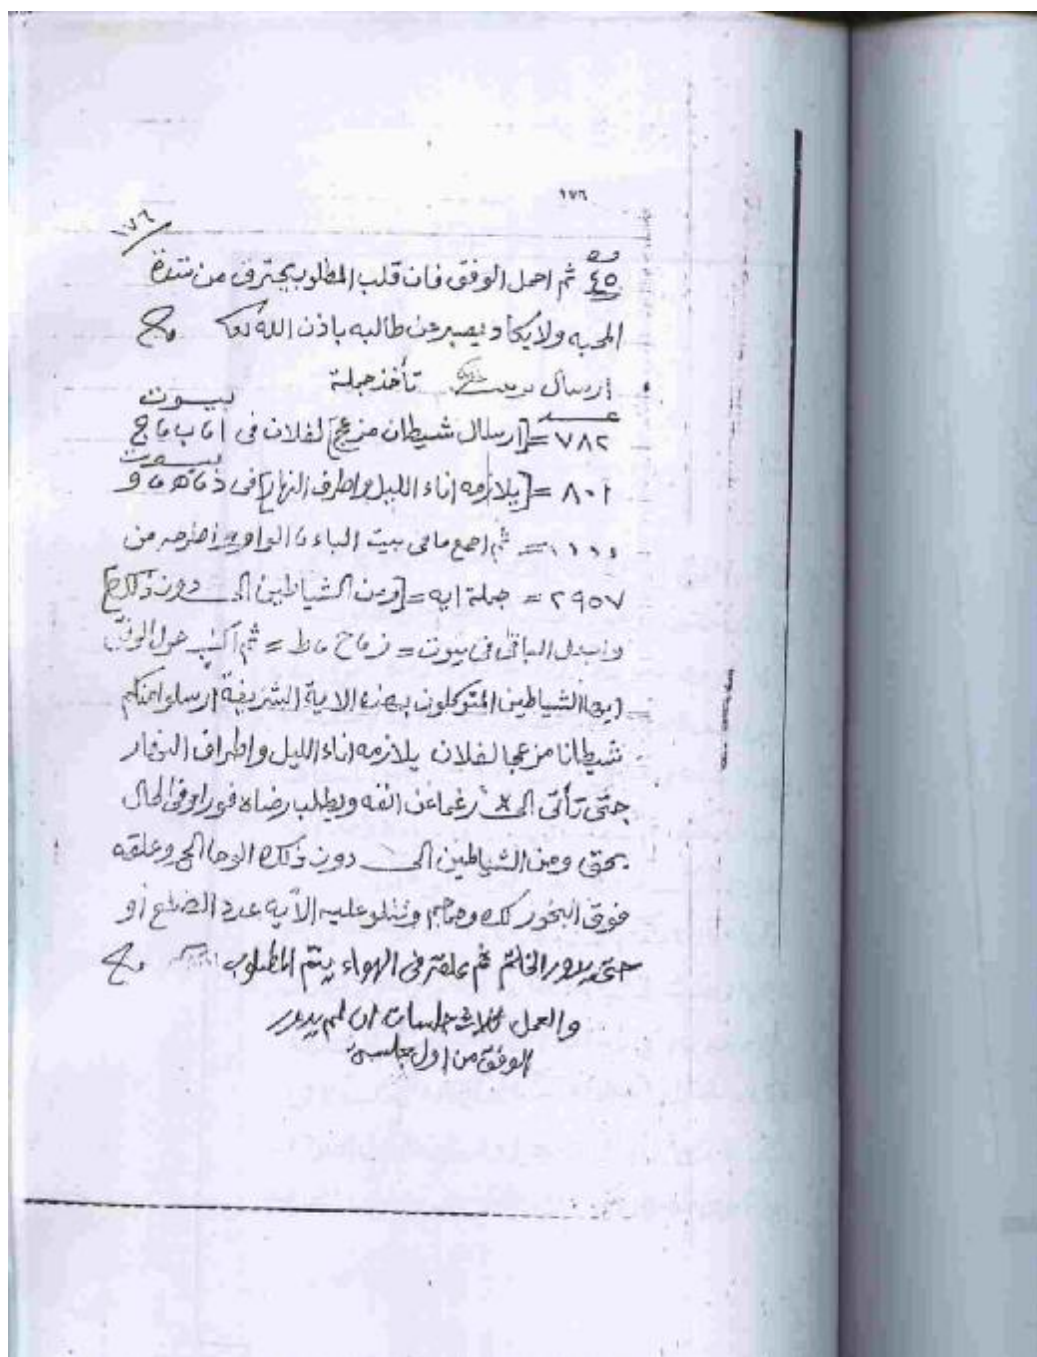 ١٧٦
١٧٦
٤٥ مره ثم احمل الوفق فان قلب المطلوب يحترق من شدة
المحبه ولا يكاد يصبر عن طالبه باذن الله تعا
ارسال تأخذ جملة
عدد بيوت
٧٨٢ = [ارسال شيطان مزعج] لفلان فى ا ما ب ما ج
بيوت
٨٠١ = [يلازمه اناء الليل واطرف النهار] فى د ما ه ما و
= ثم اجمع ما فى بيت الباء ما الواو اطرحه من
٢٩٥٧ = جملة ايه = [ومن الشياطين الى دون ذلك]
وانزل الباقى فى بيوت = ز ما ح ما ط = ثم اكتب حول الوفق
= ايها الشياطين المتوكلون بهذه الاية الشريفة ارسلوا منكم
شيطانا مزعجا لفلان يلازمه اناء الليل واطراف النهار
حتى تأتى الى * رغما عن انفه ويطلب رضاه فورا وفى الحال
بحق ومن الشياطين الى دون ذلك الوحا الخ وعلقه
فوق البخور وتتلو عليه الآيه عدد الضلع او
حتى يدور الخاتم ثم علقه فى الهواء يتم المطلوب
والعمل ثلاث جلسات ان لم يدور
الوفق من اول جلسه